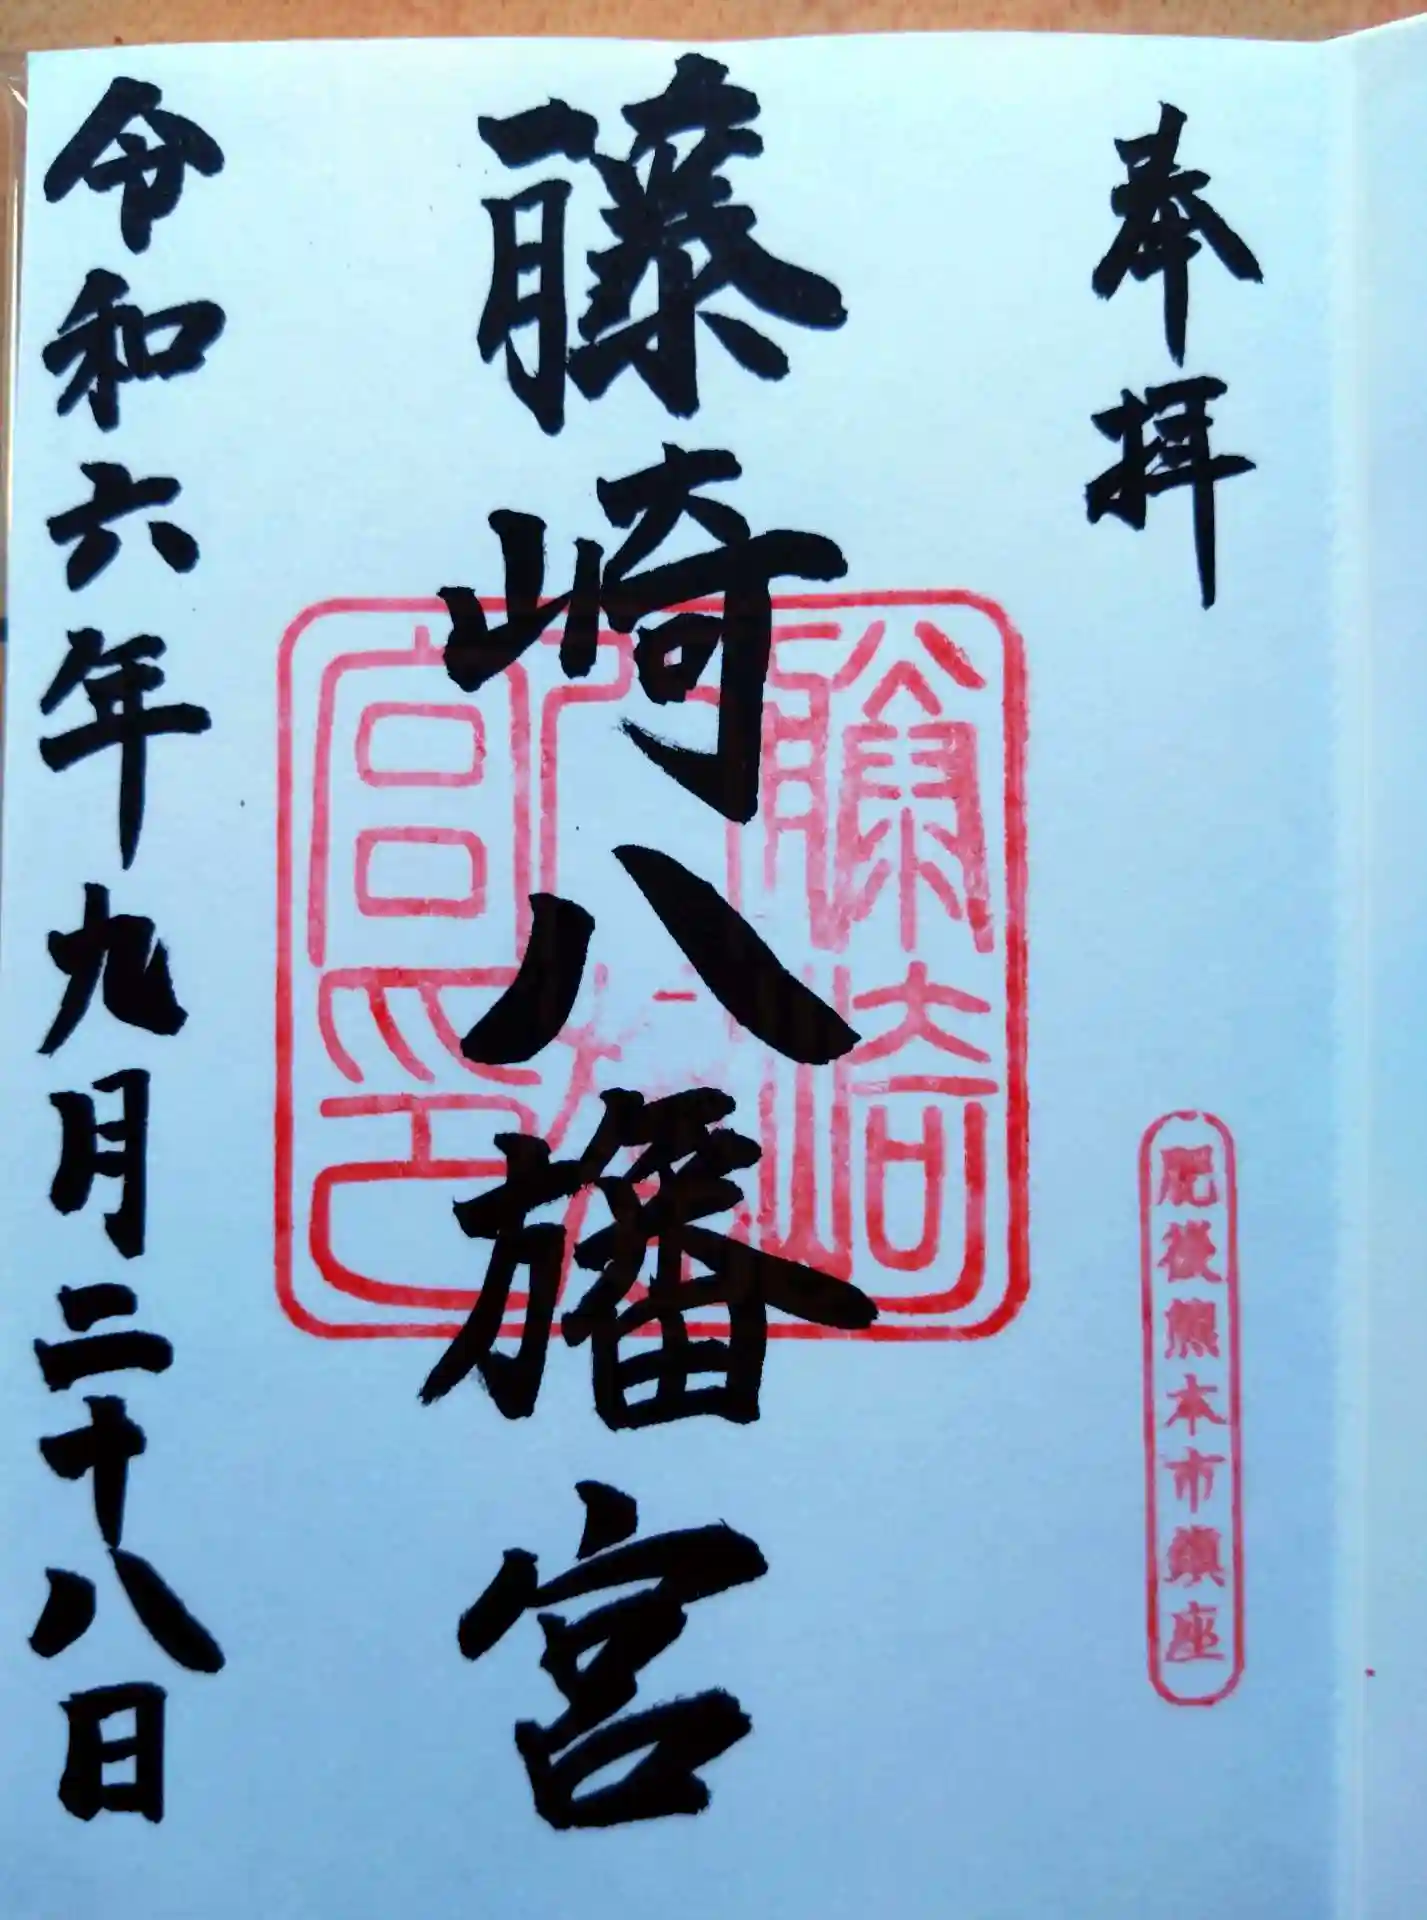 奉拝
肥後熊本市鎮座
藤崎八旛宮
藤崎
宮印
令和六年九月二十八日